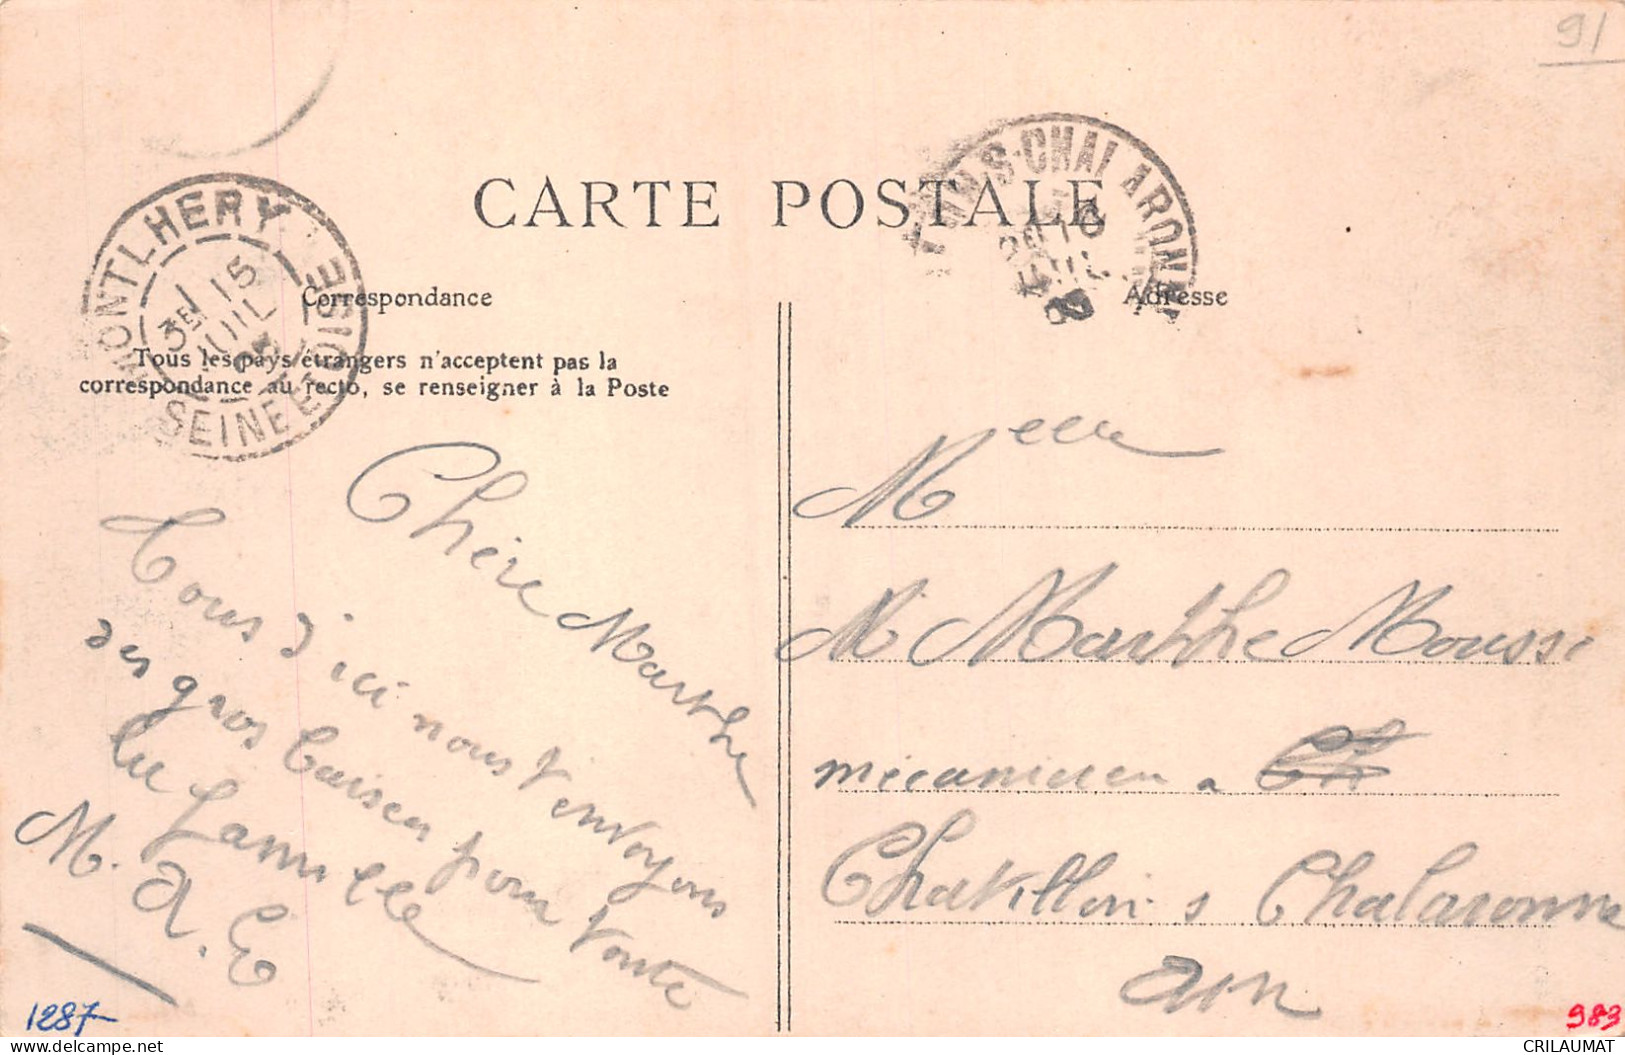 91
CARTE POSTALE
MONTLHERY
3E 15
JUIL
SEINE ET OISE
S-CHALARONNE
16
JUIL
Correspondance
Tous les pays étrangers n'acceptent pas la
correspondance au recto, se renseigner à la Poste
Adresse
Chère Marthe
Tous d'ici nous t'envoyons
des gros baisers pour toute
la famille
M. A. E
Melle
M Marthe Mousse
mécanicien a Ch
Chatillon s Chalaronne
Ain
1287
983
CRILAUMAT